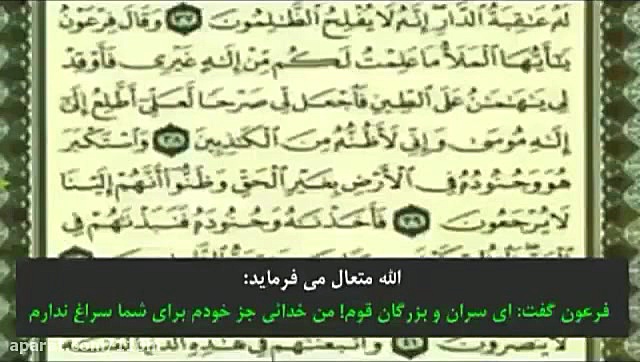 لَهُۥ عَـٰقِبَةُ ٱلدَّارِ ۖ إِنَّهُۥ لَا يُفْلِحُ ٱلظَّـٰلِمُونَ ٣٧ وَقَالَ فِرْعَوْنُ
يَـٰٓأَيُّهَا ٱلْمَلَأُ مَا عَلِمْتُ لَكُم مِّنْ إِلَـٰهٍ غَيْرِى فَأَوْقِدْ
لِى يَـٰهَـٰمَـٰنُ عَلَى ٱلطِّينِ فَٱجْعَل لِّى صَرْحًا لَّعَلِّىٓ أَطَّلِعُ إِلَىٰٓ
إِلَـٰهِ مُوسَىٰ وَإِنِّى لَأَظُنُّهُۥ مِنَ ٱلْكَـٰذِبِينَ ٣٨ وَٱسْتَكْبَرَ
هُوَ وَجُنُودُهُۥ فِى ٱلْأَرْضِ بِغَيْرِ ٱلْحَقِّ وَظَنُّوٓا۟ أَنَّهُمْ إِلَيْنَا
لَا يُرْجَعُونَ ٣٩ فَأَخَذْنَـٰهُ وَجُنُودَهُۥ فَنَبَذْنَـٰهُمْ فِى
الله متعال می فرماید:
فرعون گفت: ای سران و بزرگان قوم! من خدائی جز خودم برای شما سراغ ندارم
يُنصَرُونَ ٤١ وَأَتْبَعْنَـٰهُمْ فِى هَـٰذِهِ